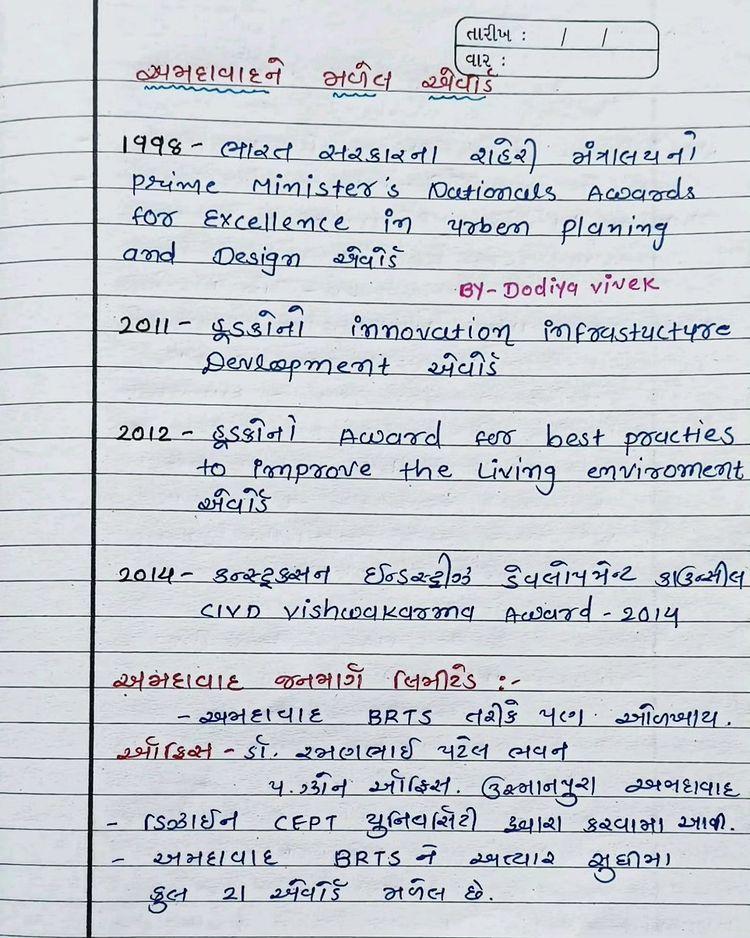 તારીખ : / /
વાર :
અમદાવાદને મળેલ એવોર્ડ
1998 - ભારત સરકારના શહેરી મંત્રાલયનો
Prime Minister's Nationals Awards
for Excellence in urben planing
and Design એવોર્ડ
BY - Dodiya vivek
2011 - હૂડકોનો innovation infrastucture
Development એવોર્ડ
2012 - હૂડકોનો Award for best practies
to improve the Living enviroment
એવોર્ડ
2014 - કન્સ્ટ્રકસન ઈન્ડસ્ટ્રીઝ ડેવલોપમેન્ટ કાઉન્સીલ
CIVD vishwakarma Award - 2014
અમદાવાદ જનમાર્ગ લિમીટેડ :-
- અમદાવાદ BRTS તરીકે પણ ઓળખાય.
ઓફિસ - ડૉ. રમણભાઈ પટેલ ભવન
પ.ઝોન ઓફિસ. ઉસ્માનપુરા અમદાવાદ
- ડિઝાઈન CEPT યુનિવર્સિટી દ્વારા કરવામા આવી.
- અમદાવાદ BRTS ને અત્યાર સુધીમા
કુલ 21 એવોર્ડ મળેલ છે.